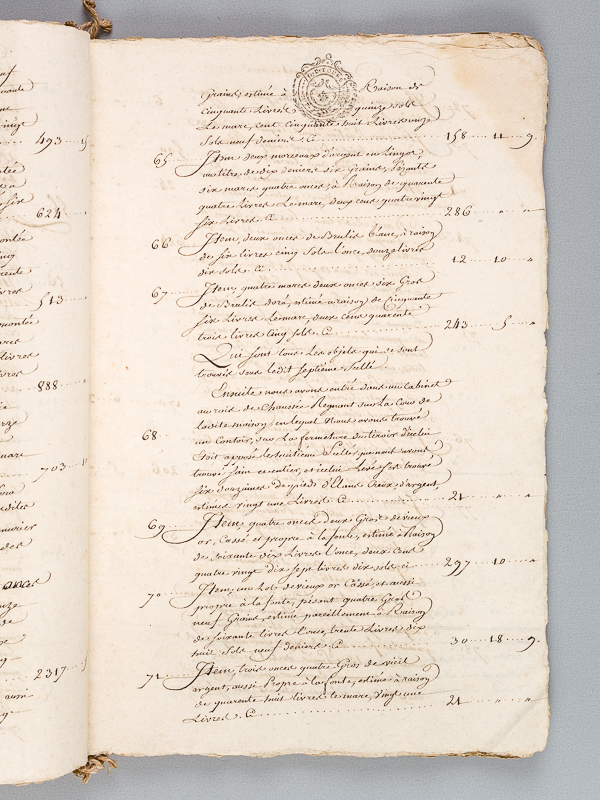 493
624
513
888
703
2317
grains, estimé à Raison de
cinquante Livres quinze sols
Le marc, cent cinquante huit Livres onze
sols neuf deniers. C 158 11 9.
65 Item deux morceaux d'argent en Lingot,
au titre de dix deniers six grains, pesants
six marcs quatre onces à Raison de quarante
quatre livres Le marc, deux cens quatre vingt
six Livres. C 286 " "
66 Item, deux onces de Brulis blanc, à raison
de six livres cinq sols l'once, douze livres
dix sols. C 12 10 "
67 Item, quatre marcs deux onces six Gros
de Brulis doré, estimé à raison de cinquante
six Livres Le marc, deux cens quarente
trois livres cinq sols. C 243 5 "
Qui sont tous Les objets qui se sont
trouvés sous ledit septième scellé.
Ensuite nous avons entré dans un Cabinet
au raiz de Chaussée Regnant sur La Cour de
ladite maison, en lequel Nous avons trouvé
68 un Contoir, sur La fermeture du tiroir d'icelui
étoit aposé le huitieme scellé, que nous avons
trouvé sain et entier, et icelui Levé s'est trouvé
six douzaines de pieds d'Etuis Creux d'argent,
estimés vingt une Livres. C 21 " "
69 Item, quatre onces deux Gros de vieux
or, Cassé et propre à la fonte, estimé à Raison
de soixante dix Livres l'once, deux Cens
quatre vingt dix sept livres dix sols. C 297 10 "
70 Item, un Lot de vieux or Cassé, et aussi
propre à la fonte, pesant quatre Gros
neuf Grains, estimé pareillement à Raison
de soixante livres l'once, trente Livres dix
huit sols neuf deniers. C 30 18 9.
71 Item, trois onces quatre Gros de vieil
argent, aussi Propre à la fonte, estimé à raison
de quarente huit livres le marc, vingt une
Livres. C 21 " "